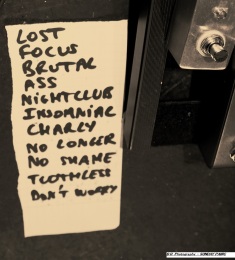 LOST
FOCUS
BRUTAL
ASS
NIGHTCLUB
INSOMNIAC
CHARLY
NO LONGER
NO SHAME
TOOTHLESS
DON'T WORRY